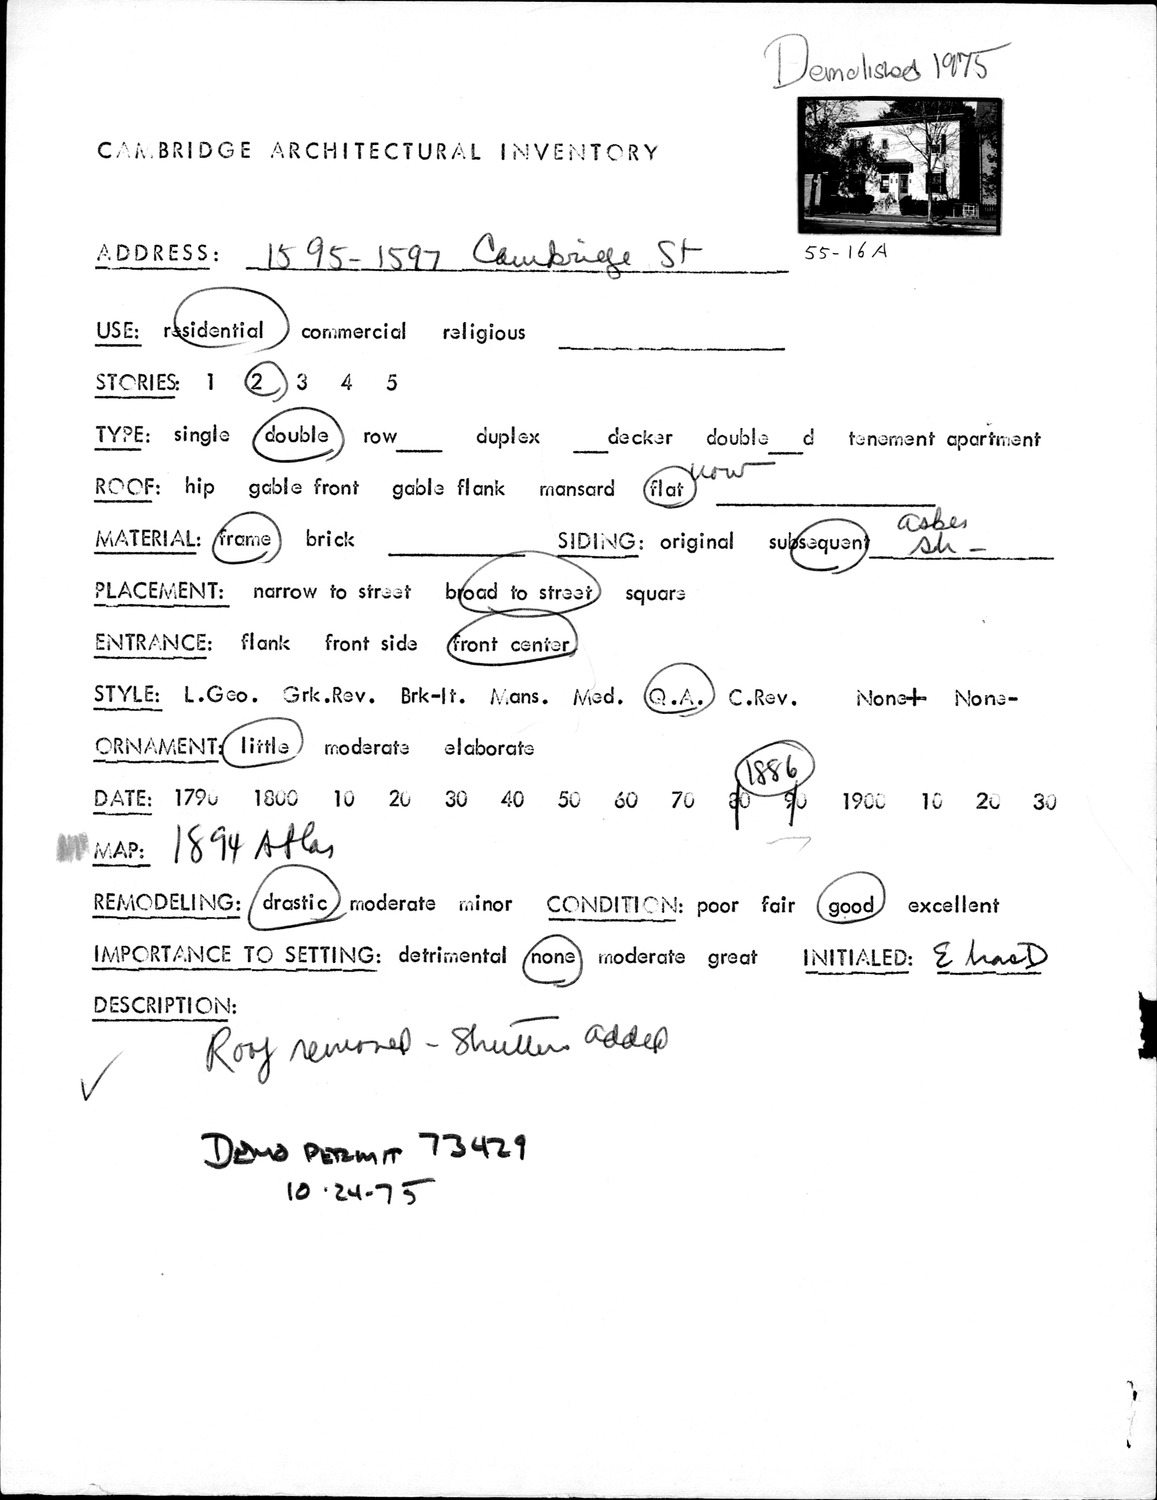 Demolished 1975
CAMBRIDGE ARCHITECTURAL INVENTORY
ADDRESS: 1595-1597 Cambridge St
55-16A
USE: residential commercial religious
STORIES: 1 2 3 4 5
TYPE: single double row___ duplex ___decker double___d tenement apartment
ROOF: hip gable front gable flank mansard flat now
MATERIAL: frame brick ________ SIDING: original subsequent asbes sh-
PLACEMENT: narrow to street broad to street square
ENTRANCE: flank front side front center
STYLE: L.Geo. Grk.Rev. Brk-It. Mans. Med. Q.A. C.Rev. None+ None-
ORNAMENT: little moderate elaborate
1886
DATE: 1790 1800 10 20 30 40 50 60 70 80 90 1900 10 20 30
MAP: 1894 Atlas
REMODELING: drastic moderate minor CONDITION: poor fair good excellent
IMPORTANCE TO SETTING: detrimental none moderate great INITIALED:
DESCRIPTION:
Roof removed - Shutters added
DEMO PERMIT 73429
10-24-75